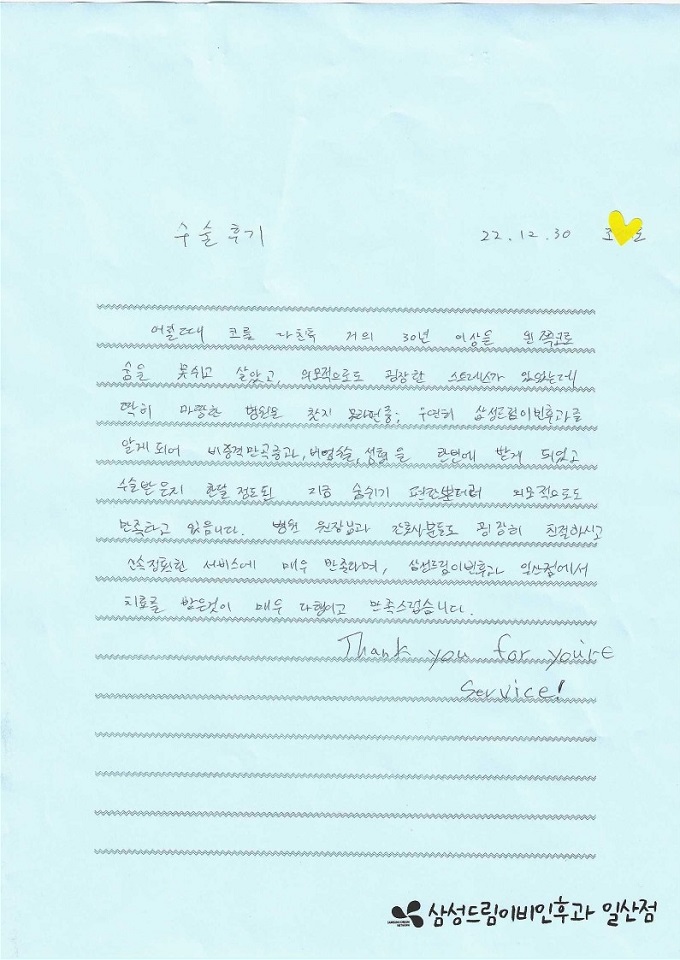 수술후기 22.12.30 조 도
어릴때 코를 다친후 거의 30년 이상을 왼쪽코로
숨을 못쉬고 살았고, 외모적으로도 굉장한 스트레스가 있었는데
딱히 마땅한 병원을 찾지 못하던중; 우연히 삼성드림이빈후과를
알게되어 비중격만곡증과, 비염수술, 성형을 한번에 받게 되었고
수술받은지 한달정도된 지금 숨쉬기 편한 외모적으로도
만족하고 있읍니다. 병원 원장님과 간호사분들도 굉장히 친절하시고
신속정확한 서비스에 매우 만족하며, 삼성드림이빈후과 일산점에서
치료를 받은것이 매우 다행이고 만족스럽습니다.
Thank you for you're
Service!
삼성드림이비인후과 일산점